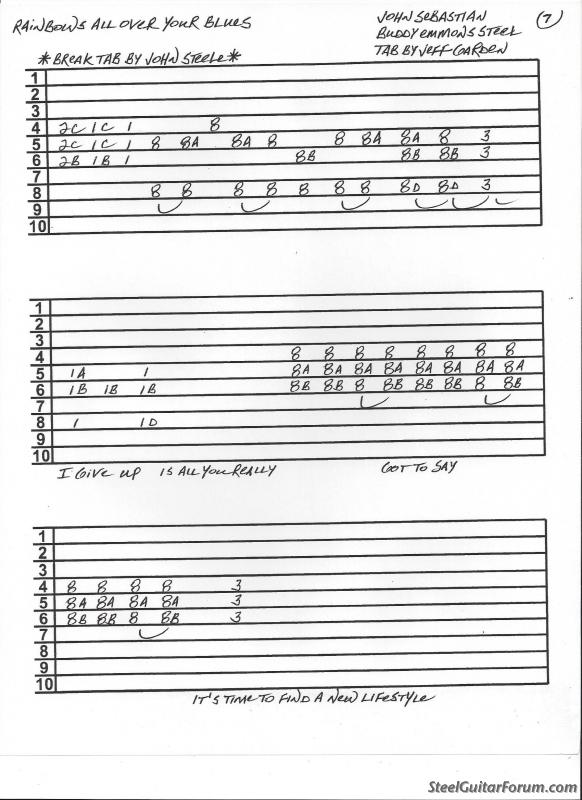 RAINBOWS ALL OVER YOUR BLUES
JOHN SEBASTIAN
BUDDY EMMONS STEEL
TAB BY JEFF GARDEN
(7)
*BREAK TAB BY JOHN STEELE*
1
2
3
4 2C 1C 1 8
5 2C 1C 1 8 8A 8A 8 8 8A 8A 8 3
6 2B 1B 1 8B 8B 8B 3
7
8 8 8 8 8 8 8 8 8D 8D 3
9
10
1
2
3
4 8 8 8 8 8 8 8 8
5 1A 1 8A 8A 8A 8A 8A 8A 8A 8A
6 1B 1B 1B 8B 8B 8 8B 8B 8B 8 8B
7
8 1 1D
9
10
I GIVE UP IS ALL YOU REALLY GOT TO SAY
1
2
3
4 8 8 8 8 3
5 8A 8A 8A 8A 3
6 8B 8B 8 8B 3
7
8
9
10
IT'S TIME TO FIND A NEW LIFESTYLE
SteelGuitarForum.com